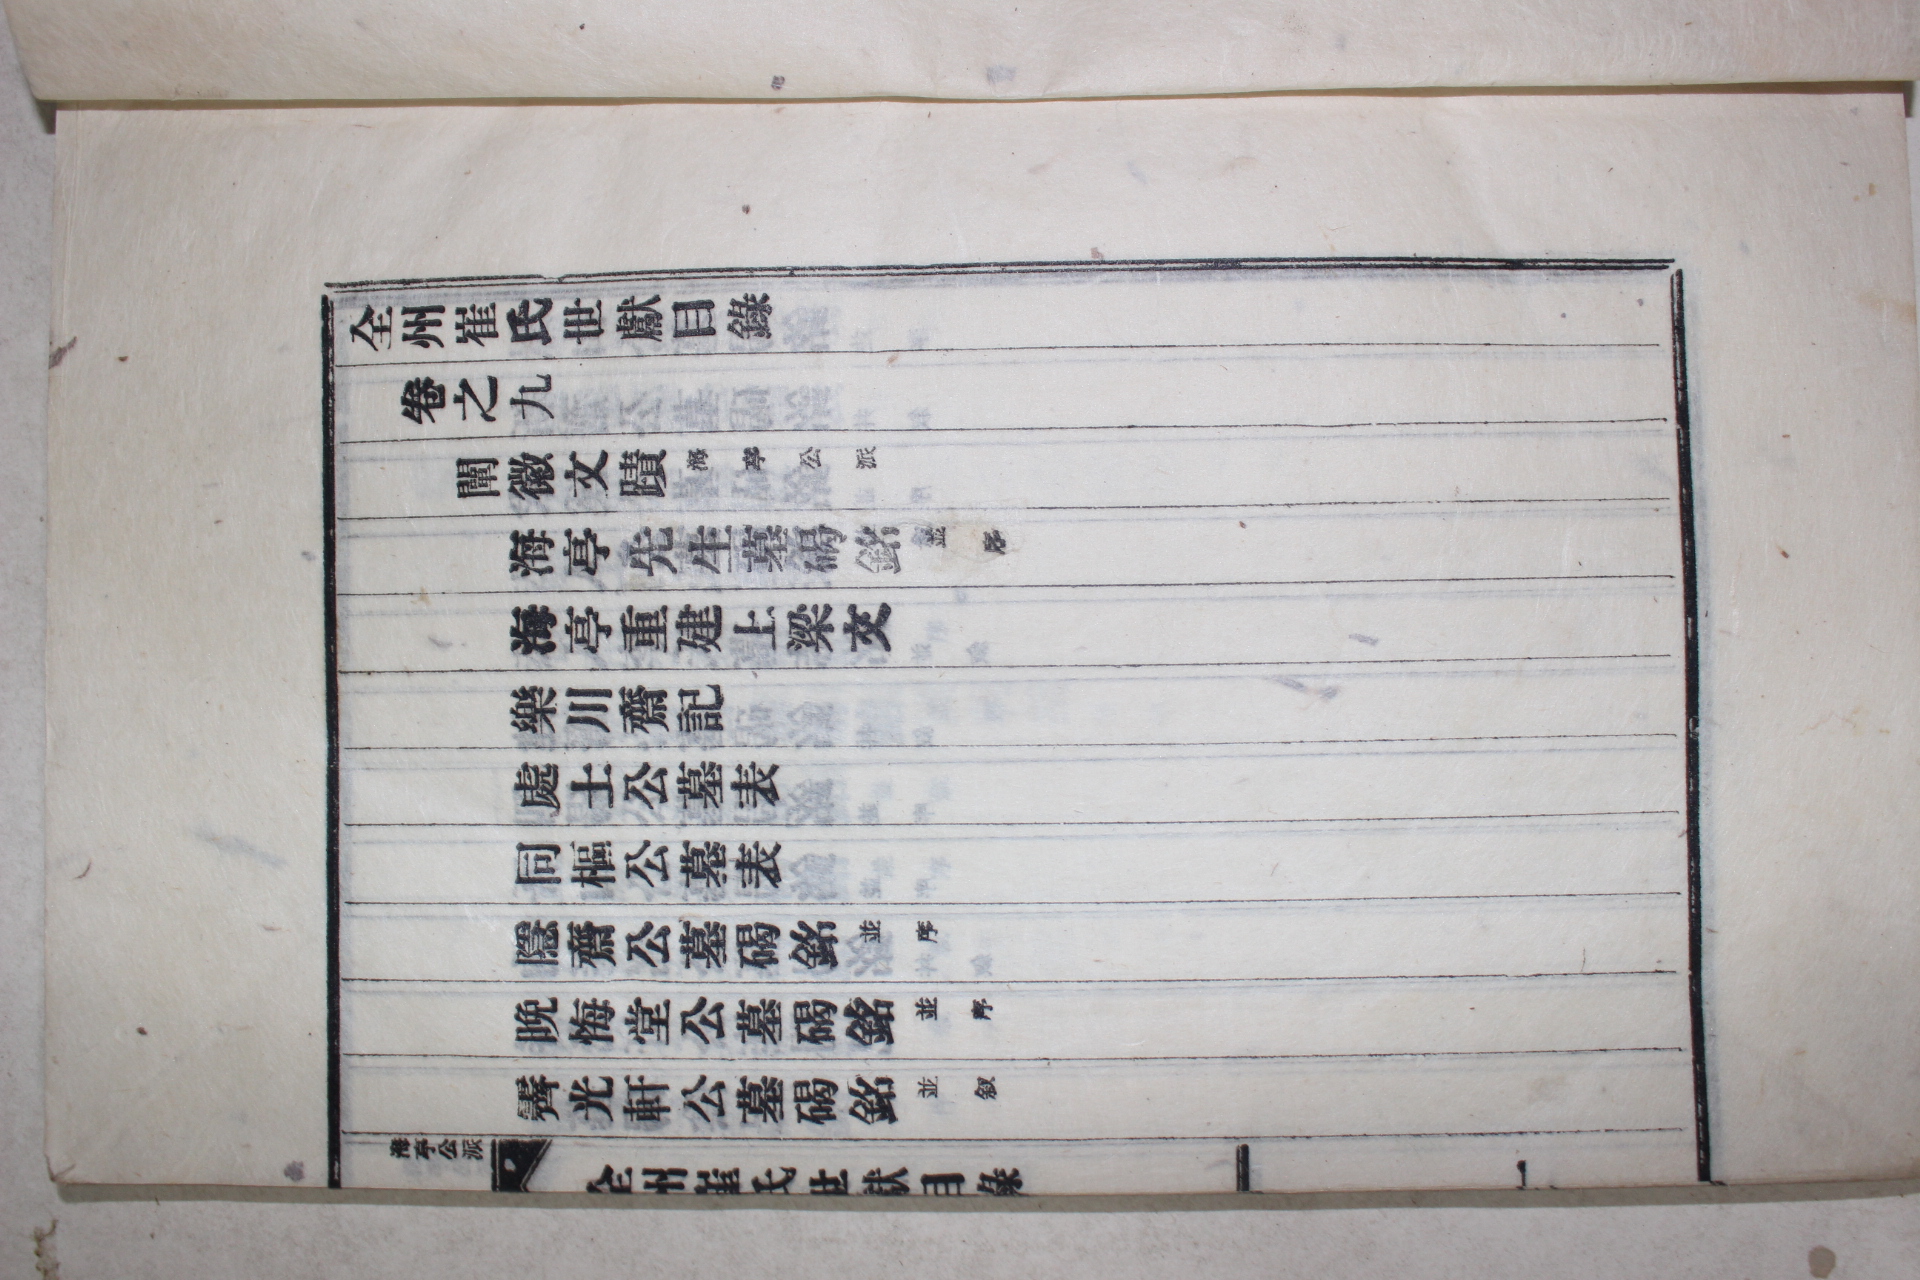 全州崔氏世獻目錄
卷之九
闡徽文蹟 海亭公派
海亭先生墓碣銘 並序
海亭重建上梁文
樂川齋記
處士公墓表
同樞公墓表
隱齋公墓碣銘 並序
晩悔堂公墓碣銘 並序
霽光軒公墓碣銘 並叙
海亭公派
全州崔氏世獻目錄